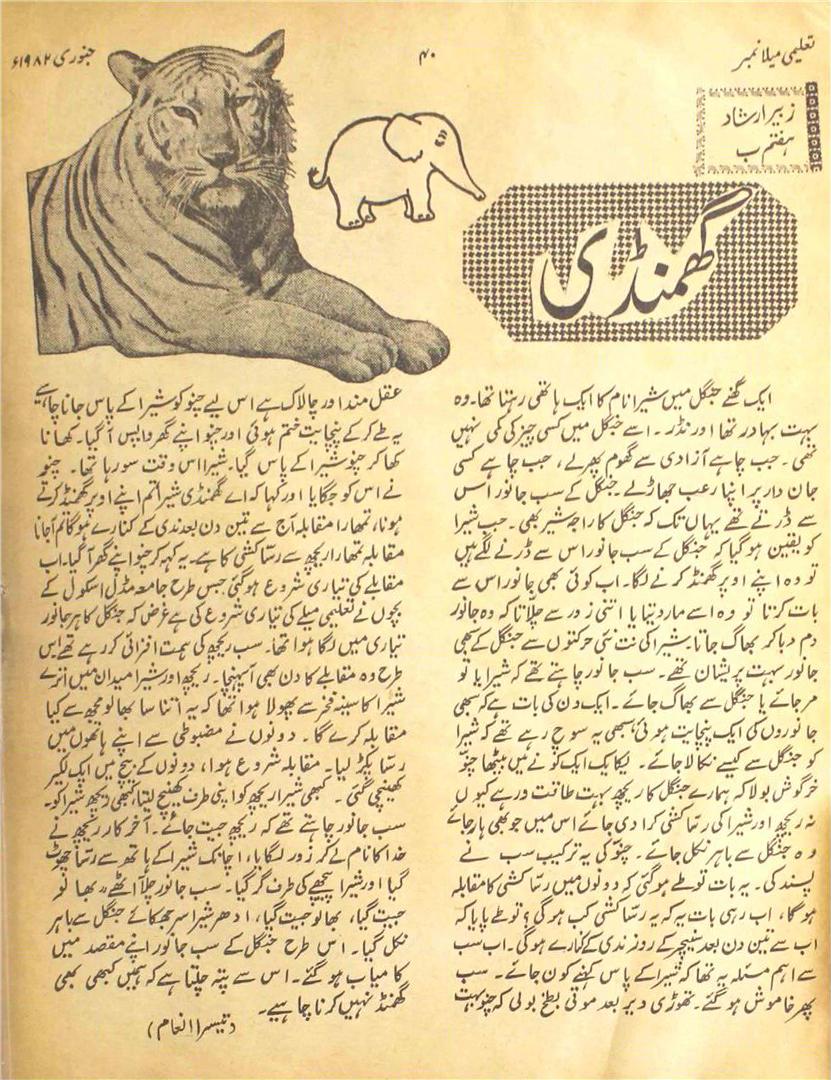 تعلیمی میلا نمبر
۴۰
جنوری ۱۹۸۲ء
زبیر ارشاد
ہفتم ب
گھمنڈی
ایک گھنے جنگل میں شیرا نام کا ایک ہاتھی رہتا تھا۔ وہ
بہت بہادر تھا اور نڈر۔ اسے جنگل میں کسی چیز کی کمی نہیں
تھی۔ جب چاہے آزادی سے گھوم پھر لے، جب چاہے کسی
جان دار پر اپنا رعب جھاڑ لے جنگل کے سب جانور اس
سے ڈرتے تھے یہاں تک کہ جنگل کا راجہ شیر بھی۔ جب شیرا
کو یقین ہو گیا کہ جنگل کے سب جانور اس سے ڈرنے لگے ہیں
تو وہ اپنے اوپر گھمنڈ کرنے لگا۔ اب کوئی بھی جانور اس سے
بات کرتا تو وہ اسے مار دیتا یا اتنی زور سے چلاتا کہ وہ جانور
دم دبا کر بھاگ جاتا۔ شیرا کی نت نئی حرکتوں سے جنگل کے سبھی
جانور بہت پریشان تھے۔ سب جانور چاہتے تھے کہ شیرا یا تو
مر جائے یا جنگل سے بھاگ جائے۔ ایک دن کی بات ہے کہ سبھی
جانوروں کی ایک پنچایت ہوئی سبھی یہ سوچ رہے تھے کہ شیرا
کو جنگل سے کیسے نکالا جائے۔ یکایک ایک کونے میں بیٹھا چنو
خرگوش بولا کہ ہمارے جنگل کا ریچھ بہت طاقت ور ہے کیوں
نہ ریچھ اور شیرا کی رسا کشی کرا دی جائے اس میں جو بھی ہار جائے
وہ جنگل سے باہر نکل جائے۔ چنو کی یہ ترکیب سب نے
پسند کی۔ یہ بات تو طے ہو گئی کہ دونوں میں رسا کشی کا مقابلہ
ہوگا، اب رہی بات یہ کہ یہ رسا کشی کب ہوگی؟ تو طے پایا کہ
اب سے تین دن بعد سنیچر کے روز ندی کے کنارے ہوگی۔ اب سب
سے اہم مسئلہ یہ تھا کہ شیرا کے پاس کہنے کون جائے۔ سب
پھر خاموش ہو گئے۔ تھوڑی دیر بعد موٹی بطخ بولی کہ چنو بہت
عقل مند اور چالاک ہے اس لیے چنو کو شیرا کے پاس جانا چاہیے
یہ طے کر کے پنچایت ختم ہوئی اور چنو اپنے گھر واپس آ گیا۔ کھانا
کھا کر چنو شیرا کے پاس گیا۔ شیرا اس وقت سو رہا تھا۔ چنو
نے اس کو جگایا اور کہا کہ اے گھمنڈی شیرا تم اپنے اوپر گھمنڈ کرتے
ہونا، تمھارا مقابلہ آج سے تین دن بعد ندی کے کنارے ہوگا تم آ جانا
مقابلہ تمھارا ریچھ سے رسا کشی کا ہے۔ یہ کہہ کر چنو اپنے گھر آ گیا۔ اب
مقابلے کی تیاری شروع ہو گئی جس طرح جامعہ مڈل اسکول کے
بچوں نے تعلیمی میلے کی تیاری شروع کی ہے غرض کہ جنگل کا ہر جانور
تیاری میں لگا ہوا تھا۔ سب ریچھ کی ہمت افزائی کر رہے تھے اس
طرح وہ مقابلے کا دن بھی آ پہنچا۔ ریچھ اور شیرا میدان میں اترے
شیرا کا سینہ فخر سے پھولا ہوا تھا کہ یہ اتنا سا بھالو مجھ سے کیا
مقابلہ کرے گا۔ دونوں نے مضبوطی سے اپنے ہاتھوں میں
رسا پکڑ لیا۔ مقابلہ شروع ہوا، دونوں کے بیچ میں ایک لکیر
کھینچی گئی۔ کبھی شیرا ریچھ کو اپنی طرف کھینچ لیتا، کبھی ریچھ شیرا کو۔
سب جانور چاہتے تھے کہ ریچھ جیت جائے۔ آخر کار ریچھ نے
خدا کا نام لے کر زور لگایا، اچانک شیرا کے ہاتھ سے رسا چھوٹ
گیا اور شیرا پیچھے کی طرف گر گیا۔ سب جانور چلا اٹھے "بھالو
جیت گیا، بھالو جیت گیا، ادھر شیرا سر جھکائے جنگل سے باہر
نکل گیا۔ اس طرح جنگل کے سب جانور اپنے مقصد میں
کامیاب ہو گئے۔ اس سے پتہ چلتا ہے کہ ہمیں کبھی بھی
گھمنڈ نہیں کرنا چاہیے۔
(تیسرا انعام)